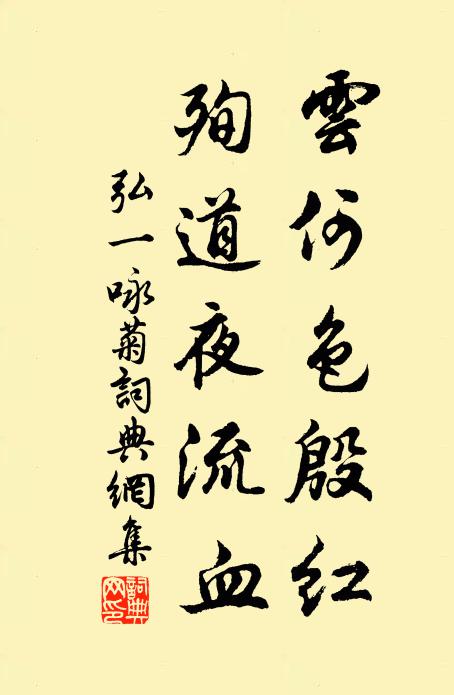 雲何色殷紅
殉道夜流血
弘一咏菊詞典網集
詞典
网印